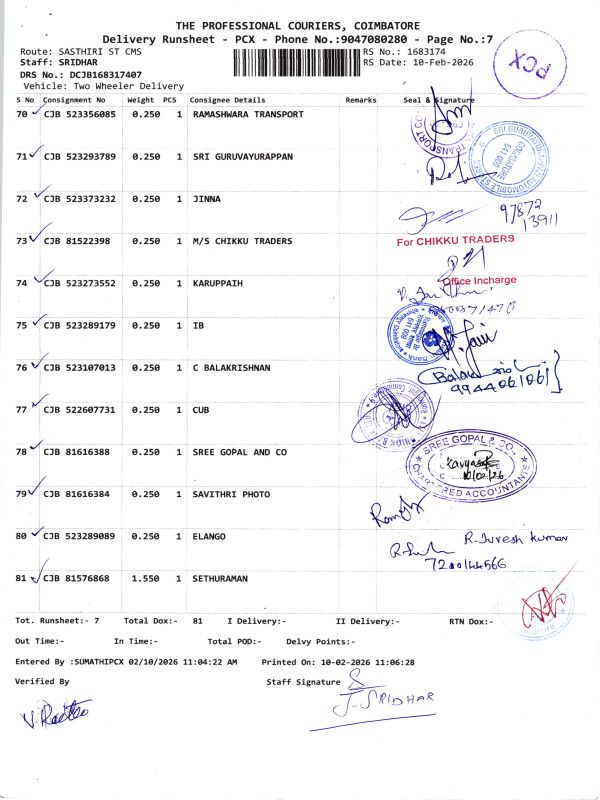 THE PROFESSIONAL COURIERS, COIMBATORE
Delivery Runsheet - PCX - Phone No.:9047080280 - Page No.:7
Route: SASTHIRI ST CMS RS No.: 1683174
Staff: SRIDHAR RS Date: 10-Feb-2026
DRS No.: DCJB168317407
Vehicle: Two Wheeler Delivery
PCX
S No Consignment No Weight PCS Consignee Details Remarks Seal & Signature
70 CJB 523356085 0.250 1 RAMASHWARA TRANSPORT
71 CJB 523293789 0.250 1 SRI GURUVAYURAPPAN
72 CJB 523373232 0.250 1 JINNA
97872
13911
73 CJB 81522398 0.250 1 M/S CHIKKU TRADERS For CHIKKU TRADERS
74 CJB 523273552 0.250 1 KARUPPAIH Office Incharge
75 CJB 523289179 0.250 1 IB
76 CJB 523107013 0.250 1 C BALAKRISHNAN
9944061061
77 CJB 522607731 0.250 1 CUB
78 CJB 81616388 0.250 1 SREE GOPAL AND CO
SREE GOPAL & CO.,
10/02/26
CHARTERED ACCOUNTANTS
79 CJB 81616384 0.250 1 SAVITHRI PHOTO
80 CJB 523289089 0.250 1 ELANGO
R. Suresh kumar
7200144566
81 CJB 81576868 1.550 1 SETHURAMAN
Tot. Runsheet:- 7 Total Dox:- 81 I Delivery:- II Delivery:- RTN Dox:-
Out Time:- In Time:- Total POD:- Delvy Points:-
Entered By :SUMATHIPCX 02/10/2026 11:04:22 AM Printed On: 10-02-2026 11:06:28
Verified By Staff Signature
J. SRIDHAR